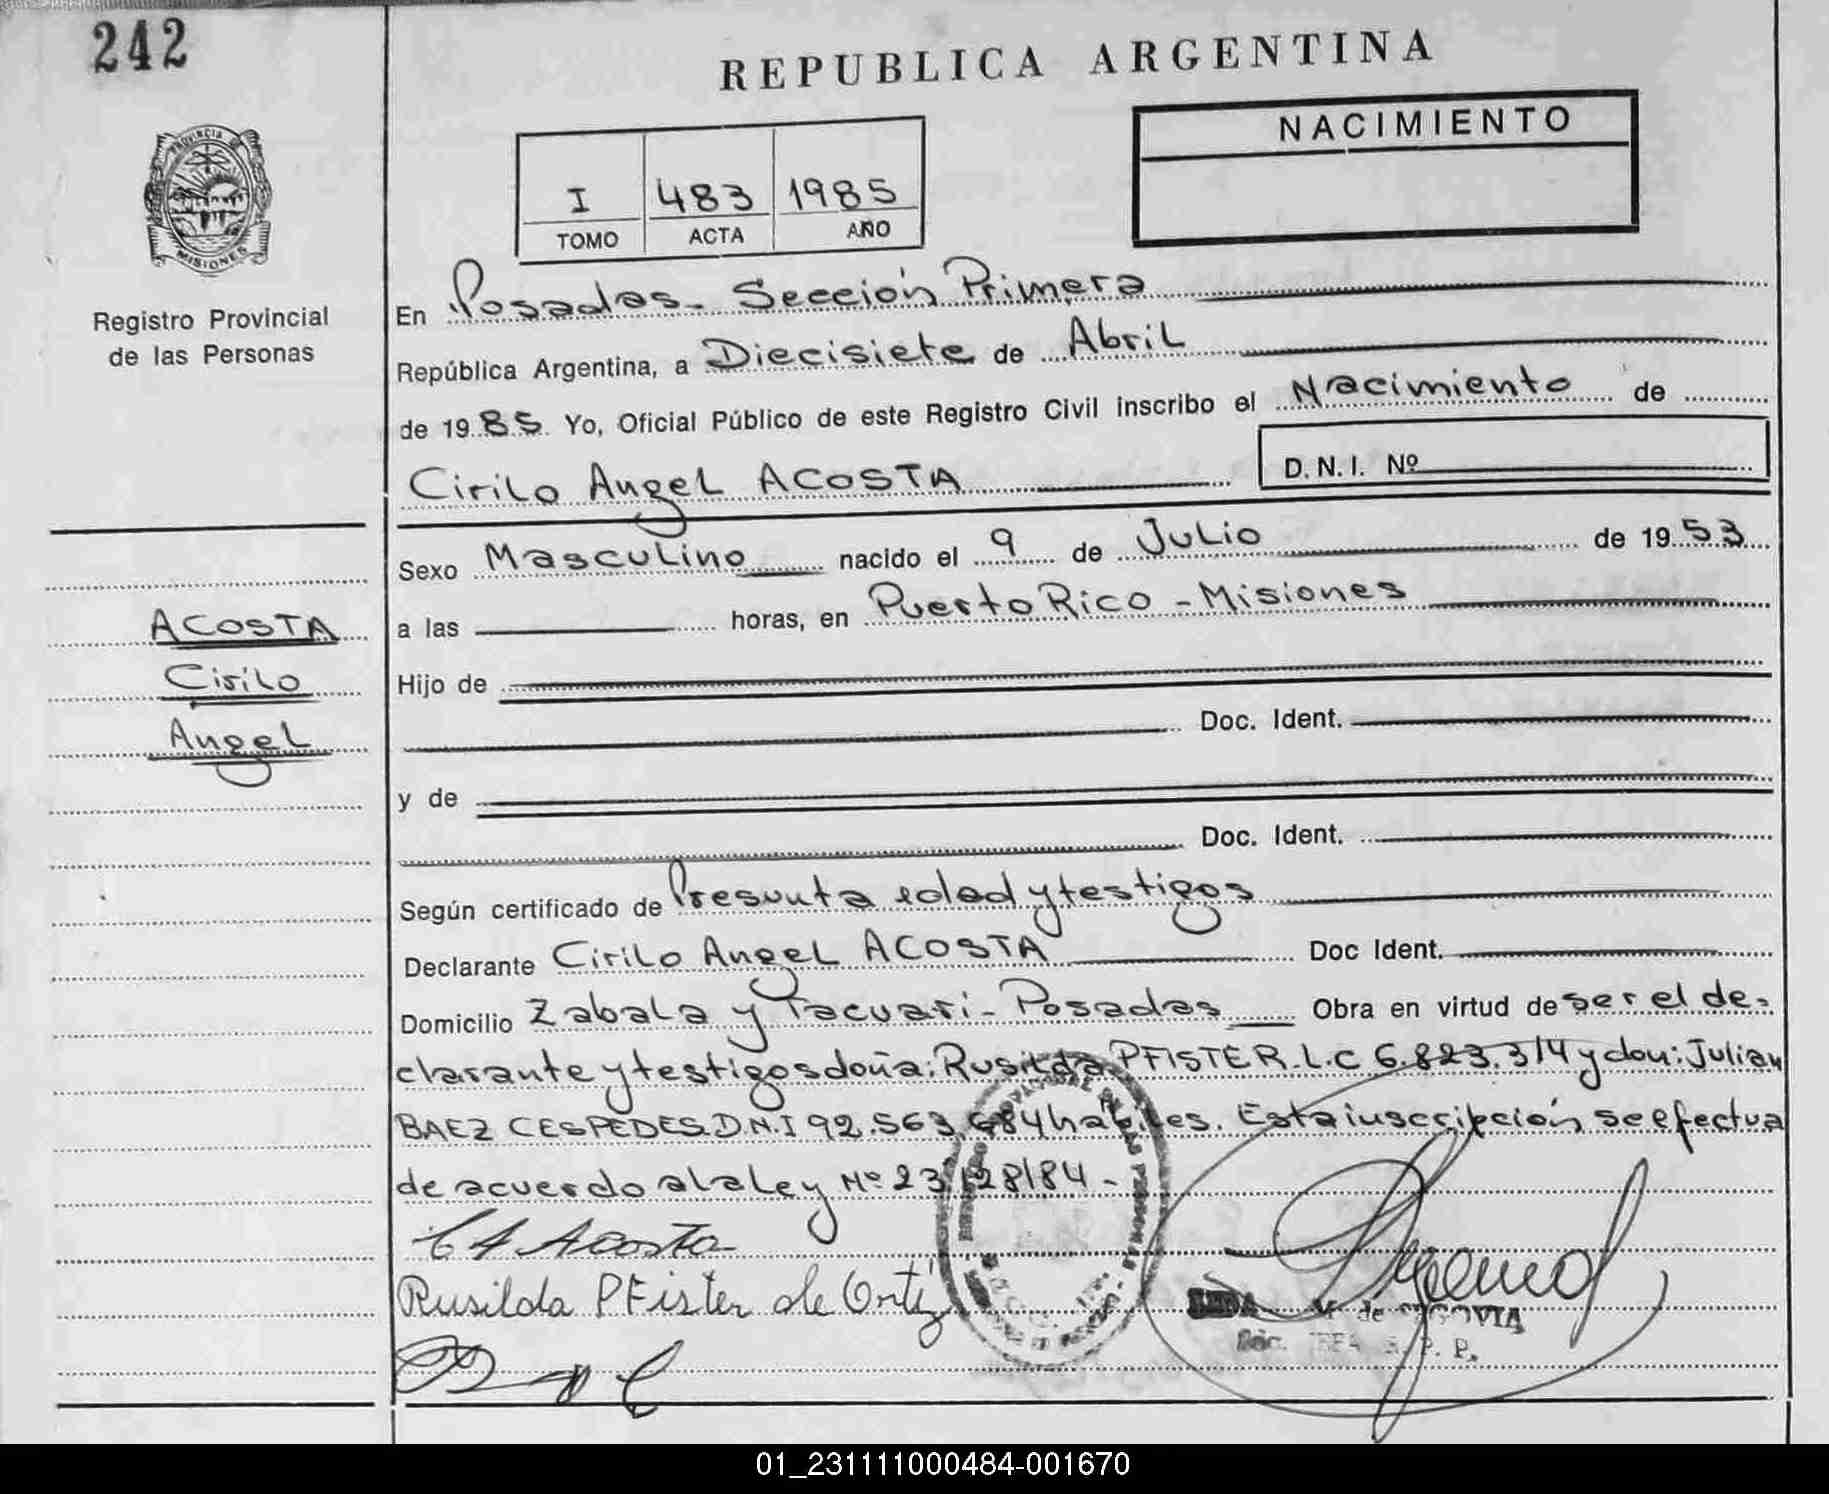 242
REPUBLICA ARGENTINA
NACIMIENTO
I 483 1985
TOMO ACTA AÑO
PROVINCIA DE
MISIONES
Registro Provincial
de las Personas
En Posadas - Sección Primera
República Argentina, a Diecisiete de Abril
de 1985 Yo, Oficial Público de este Registro Civil inscribo el Nacimiento de
Cirilo Angel ACOSTA D.N.I. Nº
Sexo Masculino nacido el 9 de Julio de 1953
ACOSTA
Cirilo
Angel
a las horas, en Puerto Rico - Misiones
Hijo de
Doc. Ident.
y de
Doc. Ident.
Según certificado de Presunta edad y testigos
Declarante Cirilo Angel ACOSTA Doc Ident.
Domicilio Zabala y Tacuari - Posadas Obra en virtud de ser el de-
clarante y testigos doña: Rusilda PFISTER. L.C 6.823.314 y don: Julian
BAEZ CESPEDES. D.N.I 92.563.684 habiles. Esta inscripción se efectua
de acuerdo a la ley Nº 23128/84 -
C A Acosta
Rusilda PFister de Ortiz
de SEGOVIA
01_231111000484-001670